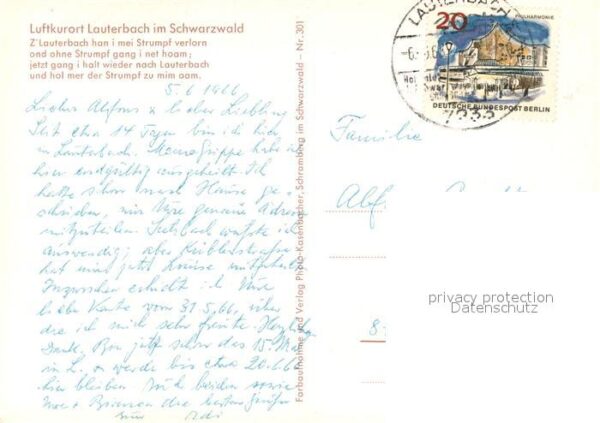 Luftkurort Lauterbach im Schwarzwald
Z'Lauterbach han i mei Strumpf verlorn
ond ohne Strumpf gang i net hoam;
jetzt gang i halt wieder nach Lauterbach
und hol mer der Strumpf zu mim aam.
5.6.1966
Lieber Alfons & liebe Liebling
Seit etwa 14 Tagen bin ich hier
in Lauterbach. Meine Grippe habe ich
hier endgültig ausgeheilt. Ich
hatte schon nach Hause ge-
schrieben, mir Eure genaue Adresse
mitzuteilen. Sulzbach wußte ich
auswendig; aber Küblerstraße
hat mir jetzt Louise mitgeteilt.
Inzwischen erhielt ich Eure
liebe Karte vom 31.5.66, über
die ich mich sehr freute. Herzlichen
Dank. Bin jetzt schon das 15. Mal
in L. & werde bis etwa 20.6.66
hier bleiben. Euch beiden sowie
die besten Grüße
Farbaufnahme und Verlag Photo-Kasenbacher, Schramberg im Schwarzwald – Nr. 301
LAUTERBACH
7233
20
PHILHARMONIE
DEUTSCHE BUNDESPOST BERLIN
Familie
Alf
8
privacy protection
Datenschutz